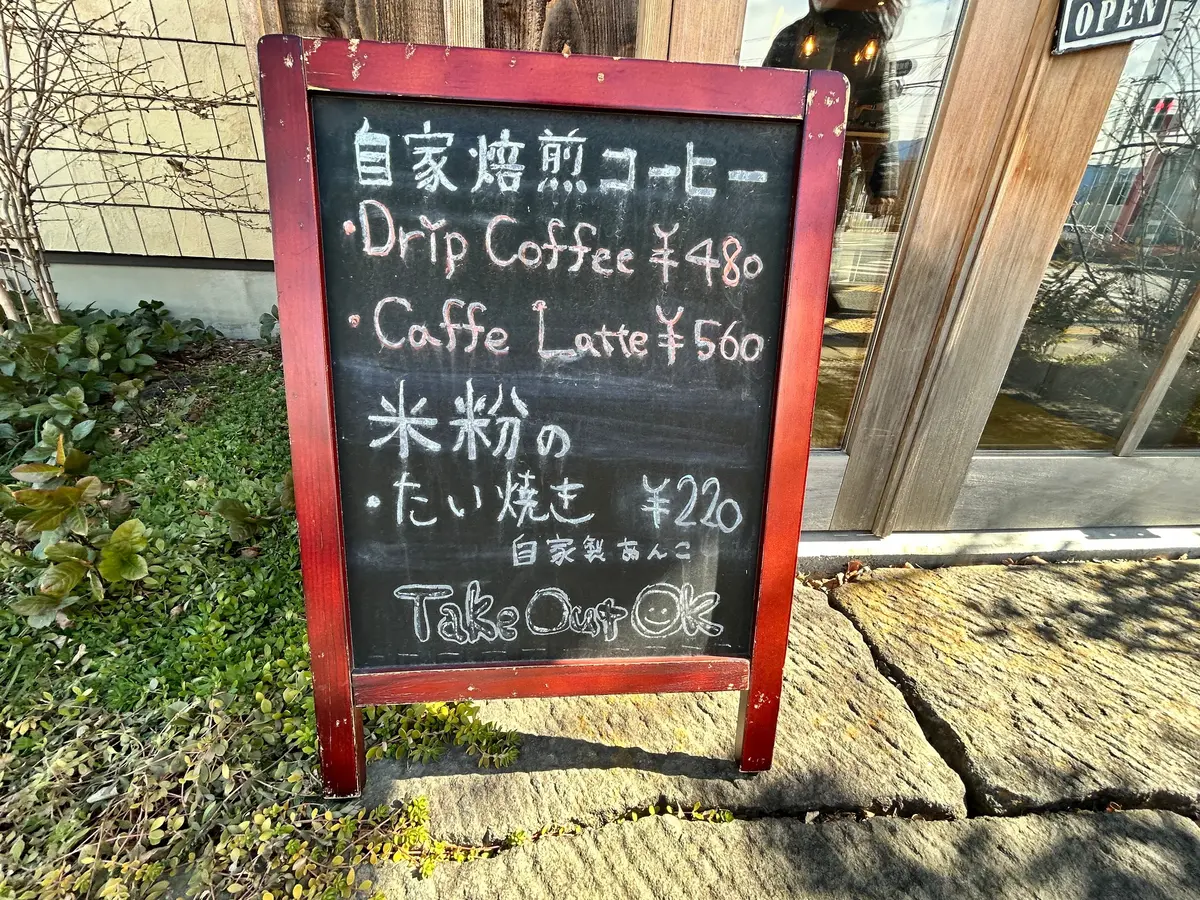 OPEN
自家焙煎コーヒー
・Drip Coffee ¥480
・Caffe Latte ¥560
米粉の
・たい焼き ¥220
自家製あんこ
Take Out OK